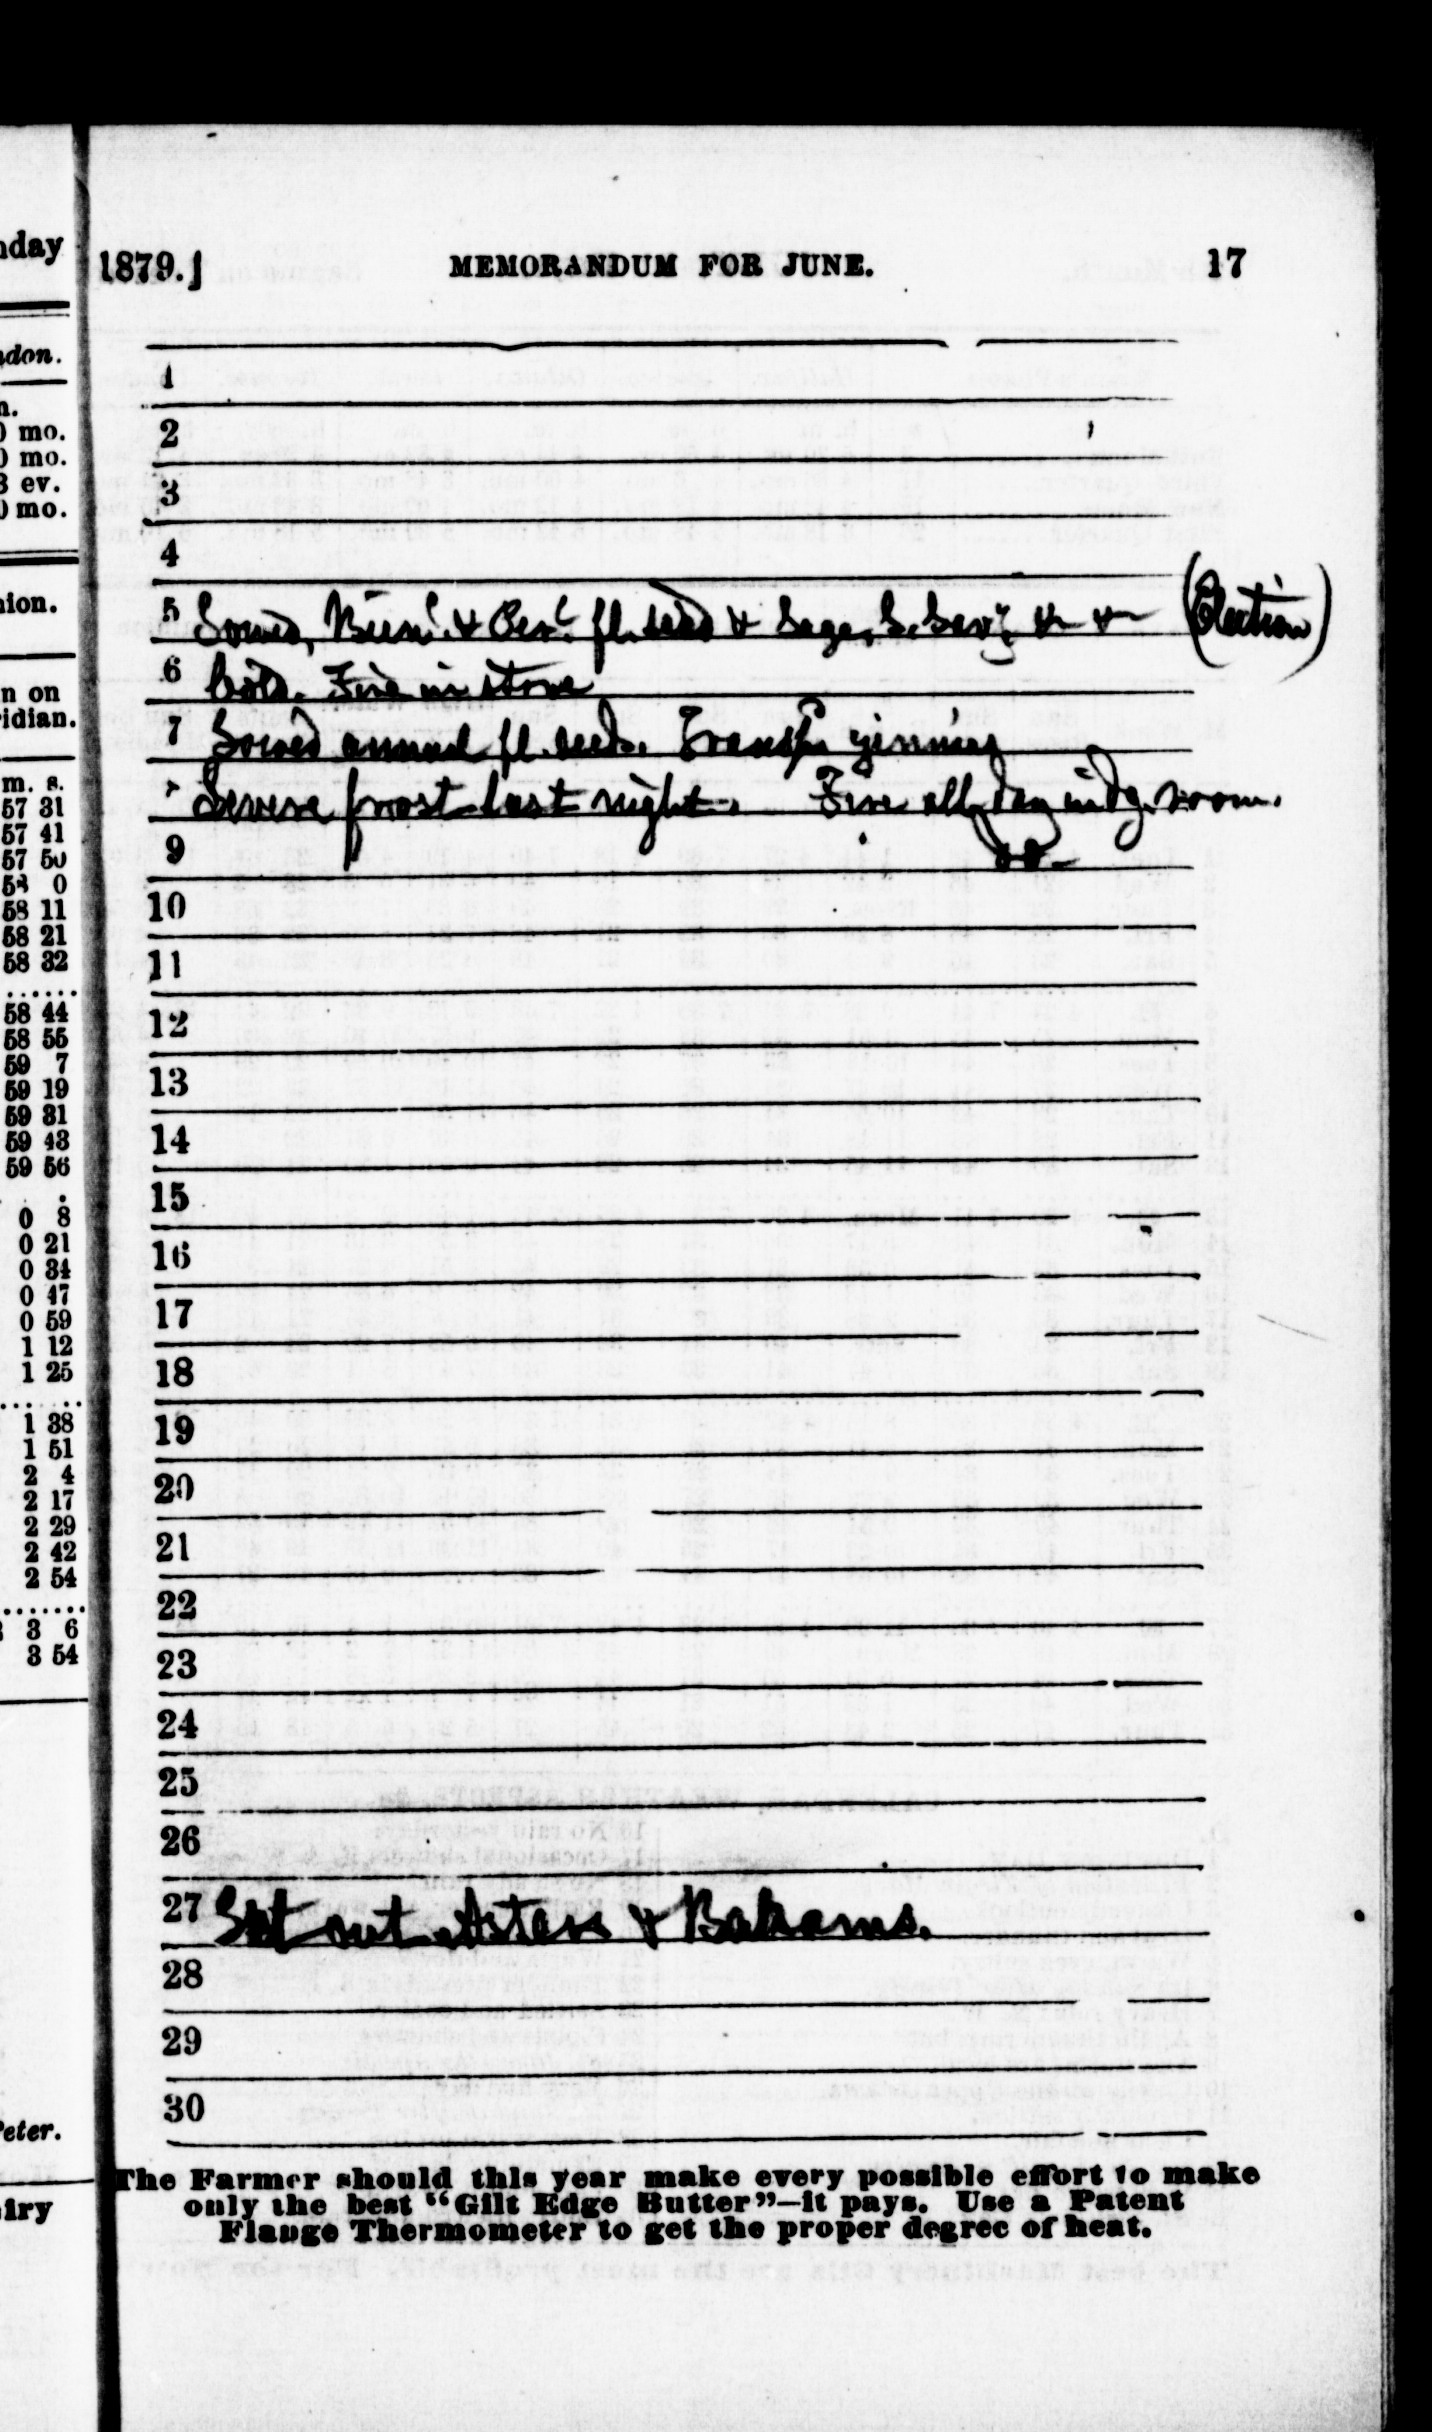 nday
ndon.
n.
0 mo.
0 mo.
3 ev.
0 mo.
nion.
n on
ridian.
m. s.
57 31
57 41
57 50
58 0
58 11
58 21
58 32
......
58 44
58 55
59 7
59 19
59 31
59 43
59 56
0 8
0 21
0 34
0 47
0 59
1 12
1 25
1 38
1 51
2 4
2 17
2 29
2 42
2 54
......
3 6
3 54
Peter.
iry
1879.] MEMORANDUM FOR JUNE. 17
1
2
3
4
5 Sowed, Bien. & Per. fl. seed & Sage, S. Sav'y, &c &c (Election)
6 Cold. Fire in stove
7 Sowed annual fl. seeds. Transp zinnias
Severe frost last night. Fire all day in dg. room.
9
10
11
12
13
14
15
16
17
18
19
20
21
22
23
24
25
26
27 Set out Asters & Balsams.
28
29
30
The Farmer should this year make every possible effort to make
only the best "Gilt Edge Butter"—it pays. Use a Patent
Flange Thermometer to get the proper degree of heat.